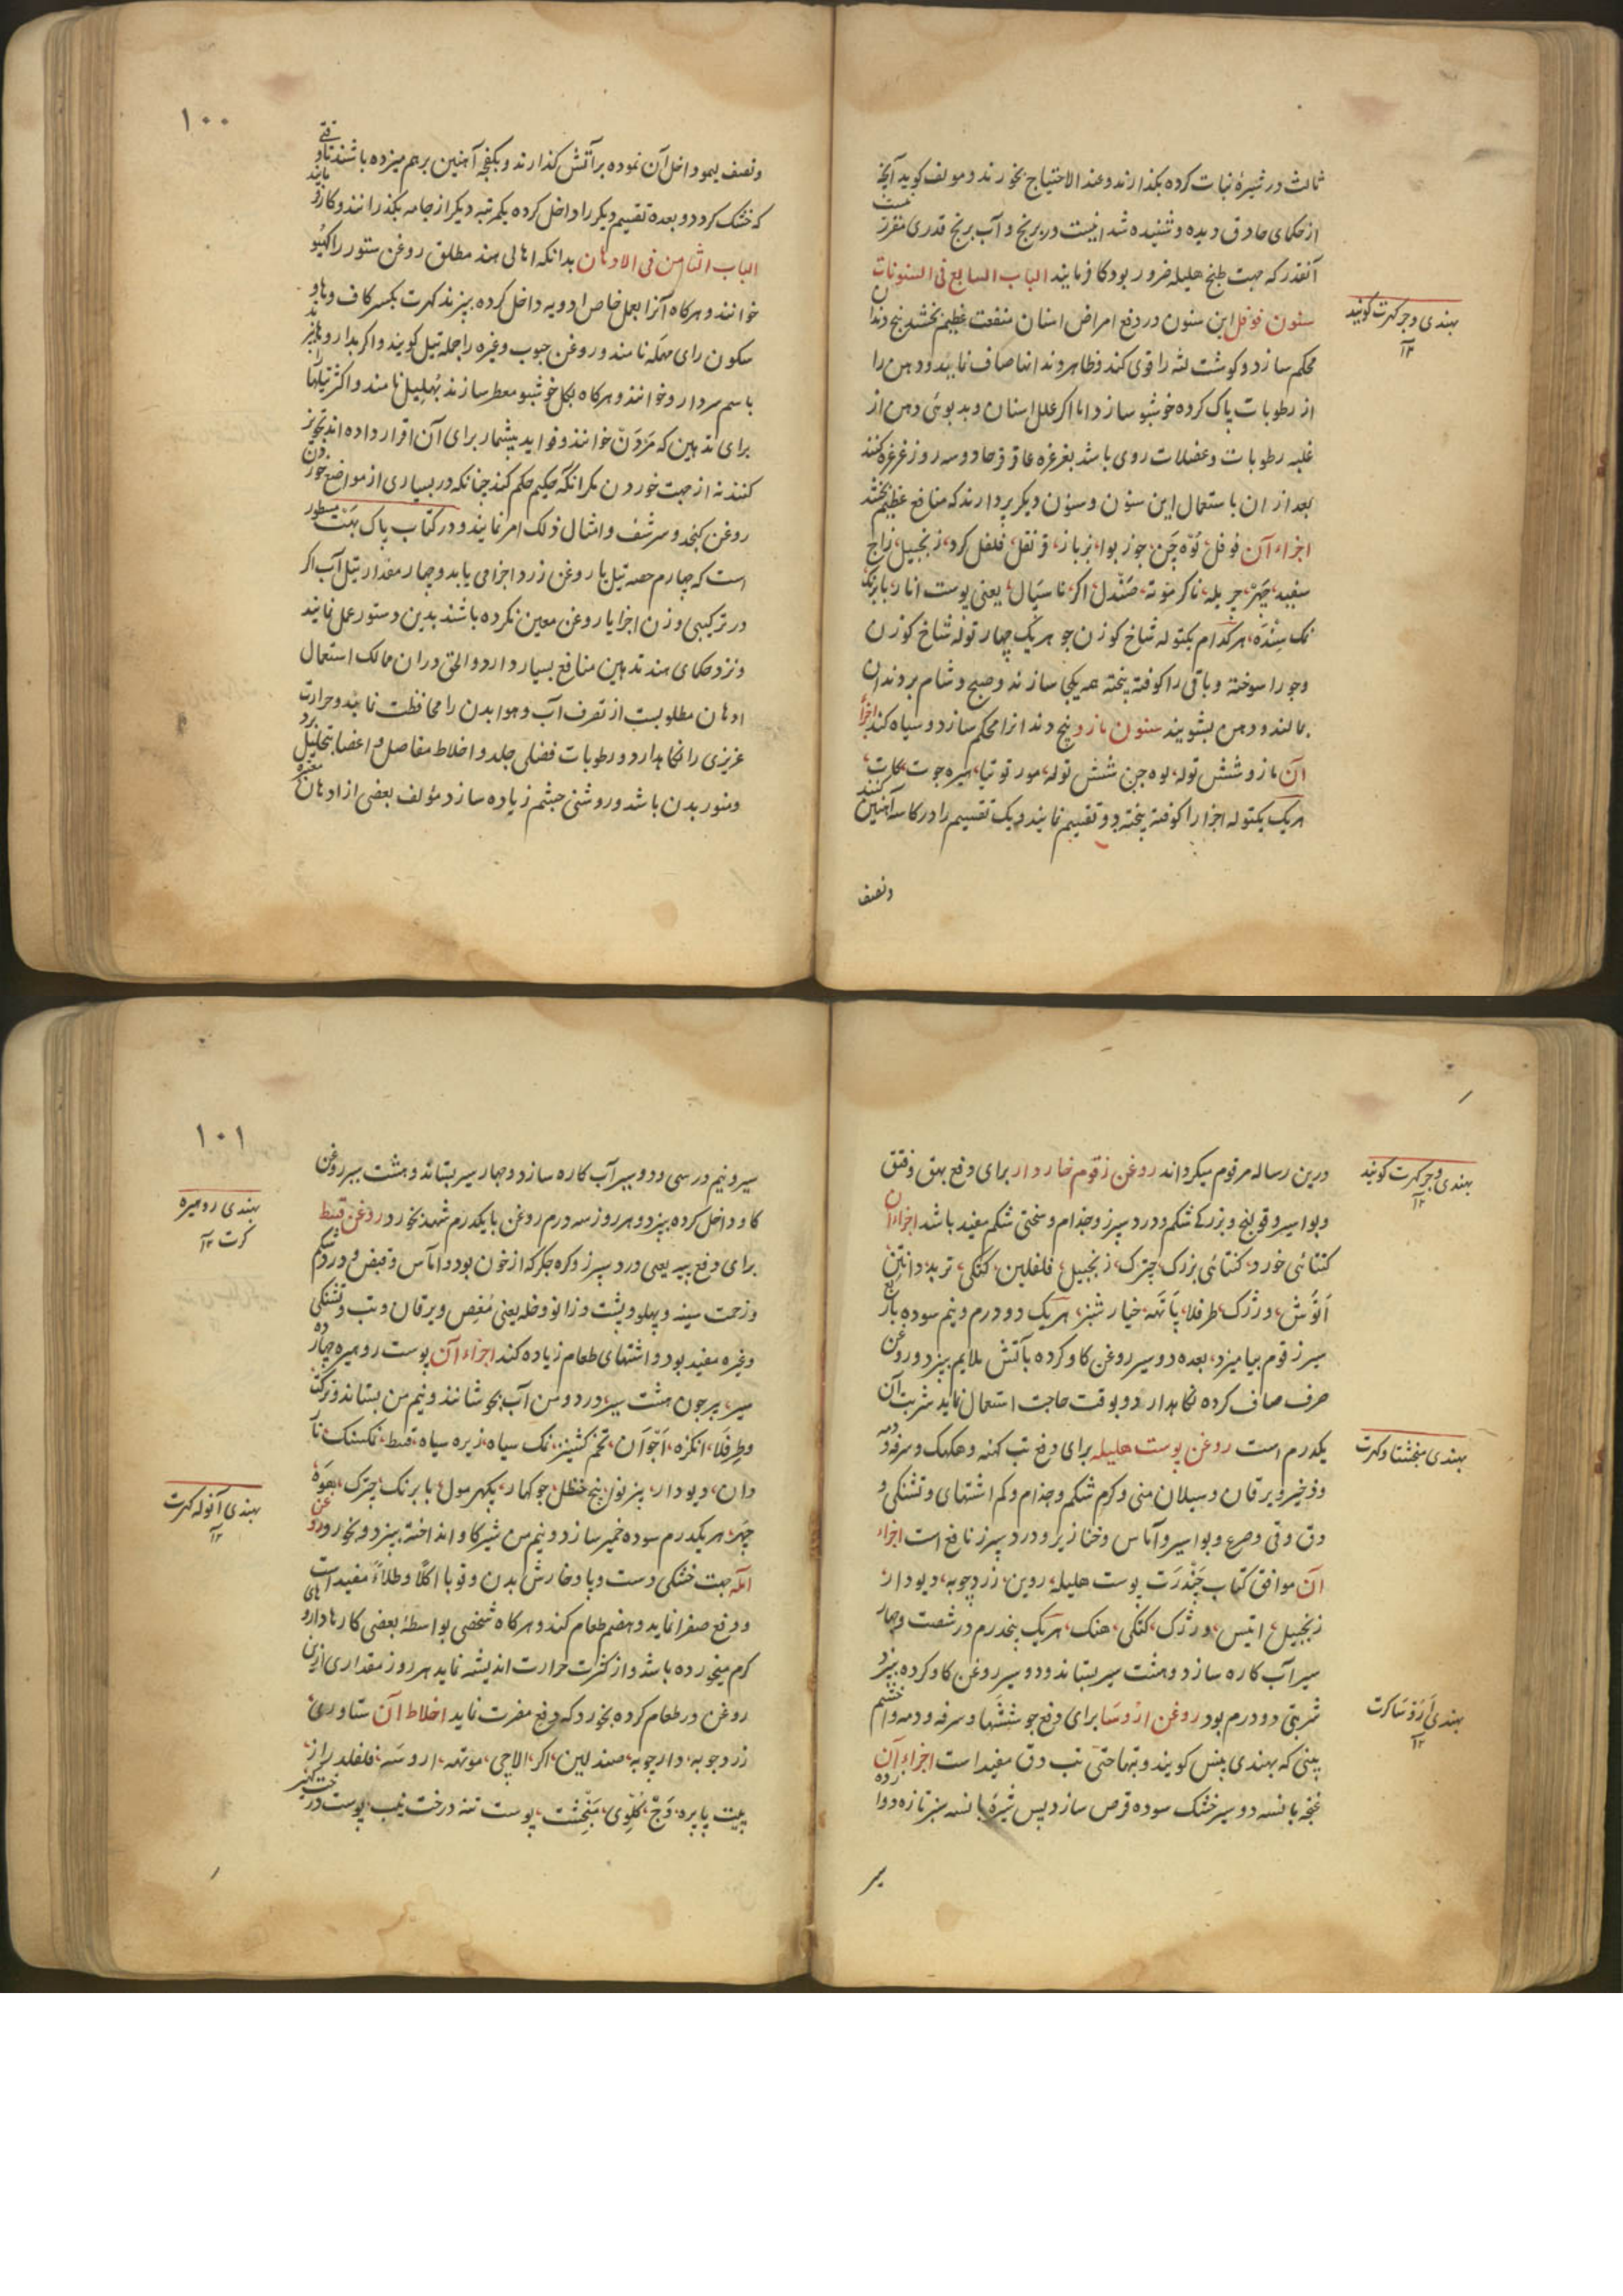 ثالث در شیرهٔ نبات کرده بگذارند و عند الاحتیاج بخورند و مولف گوید آنچه
از حکمای حاذق دیده و شنیده شد اینست در برنج و آب برنج قدری مقرر نیست
آنقدر که جهت طبخ هلیله ضرور بود کار فرمایند الباب السابع فی السنونات
سنون فوفل این سنون در دفع امراض اسنان منفعت عظیم بخشد بیخ دندان
محکم سازد و گوشت لثه را قوی کند و ظاهر دندانها صاف نماید و دهن را
از رطوبات پاک کرده خوشبو سازد اما اگر علل اسنان و بدبوئی دهن از
غلبه رطوبات و عضلات روی باشد بغرغره عاقرقرحا دو سه روز غرغره کنند
بعد از ان باستعمال این سنون و سنون دیگر پردازند که منافع عظیم بخشد
اجزاء آن فوفل، لوه چن، جوز بوا، بزباز، قرنفل، فلفل گرد، زنجبیل، زاج
سفید، چهر، جربله، ناگرموته، صندل، اگر، ناسپال، یعنی پوست انار، بابرنگ
نمک سنده، هرکدام یکتوله شاخ گوزن جو هریک چهار توله شاخ گوزن
و جو را سوخته و باقی را کوفته پخته همه یکجا سازند و صبح و شام بر دندان
بمالند و دهن بشویند سنون مازو بیخ دندانرا محکم سازد و سیاه کند اجزاء
آن مازو شش توله، لوه چن شش توله، مور توتیا، هیره جوت، کات،
هریک یکتوله اجزا را کوفته پخته دو تقسیم نمایند و یک تقسیم را در کاسه آهنین کنند
ونصف
بهندی وجر گهرت گویند
۱۲
۱۰۰
ونصف لیمو داخل آن نموده بر آتش گذارند و بکفچه آهنین برهم میزده باشند تا وقتی
که خشک گردد و بعده تقسیم دیگر را داخل کرده یکمرتبه دیگر از جامه بگذرانند و بکار
الباب الثامن فی الادهان بدانکه اهالی هند مطلق روغن ستور را گهیو
خوانند و هرگاه آنرا بعمل خاص ادویه داخل کرده بپزند گهرت بکسر کاف و ها و
سکون رای مهمله نامند و روغن حبوب و غیره را جمله تیل گویند و اگر بدارو ها پزند
باسم سر دارو خوانند و هرگاه بگل خوشبو معطر سازند پهلیل نامند و اکثر تیلها را
برای تدهین که مردن خوانند و فواید بیشمار برای آن قرار داده اند تجویز
کنند نه از جهت خوردن مگر انکه حکیم حکم کند چنانکه در بسیاری از مواضع خوردن
روغن کنجد و سرشف و امثال ذلک امر نمایند و در کتاب باک بهت مسطور
است که چهارم حصه تیل یا روغن زرد اجزا می باید و چهار مقدار تیل آب اگر
در ترکیبی وزن اجزا یا روغن معین نکرده باشند بدین دستور عمل نمایند
و نزد حکمای هند تدهین منافع بسیار دارد و الحق در ان ممالک استعمال
ادهان مطلوبست از تصرف آب و هوا بدن را محافظت نماید و حرارت
عزیزی را نگاهدارد و رطوبات فضلی جلد و اخلاط مفاصل و اعصاب تحلیل برد
و منور بدن باشد و روشنی چشم زیاده سازد مؤلف بعضی از ادهان معتبره
درین رساله مرقوم میگرداند روغن زقوم خاردار برای دفع بهق و فتق
و بواسیر و قولنج و بزرگی شکم و درد سپرز و جذام و سختی شکم مفید باشد اجزاء ان
کنتائی خورد، کنتائی بزرگ، چترک، زنجبیل، فلفلین، کتکی، تربد، دانتین
اتوش، ورژک، طرفلا، پاتهه، خیارشنبر، هریک دو درم و نیم سوده با ربع
سیر زقوم بیامیزد، بعده دو سیر روغن گاو کرده بآتش ملایم بپزد و روغن
صرف صاف کرده نگاهدارد و بوقت حاجت استعمال نماید شربت آن
یکدرم است روغن پوست هلیله برای دفع تب کهنه و هکک و سرفه و دمه
و زخیر و یرقان و سیلان منی و کرم شکم و جذام و کم اشتهای و تشنگی و
دق و قی و صرع و بواسیر و آماس و خنازیر و درد سپرز نافع است اجزاء
آن موافق کتاب چندرت پوست هلیله، روین، زردچوبه، دیودار،
زنجبیل، اتیس، ورژک، کتکی، هنگ، هریک پنجدرم در شصت و چهار
سیر آب کاره سازد و هشت سیر بستاند و دو سیر روغن گاو کرده بپزد
شربتی دو درم بود روغن اروسا برای دفع جوششها و سرفه و دمه و خشم
بینی که بهندی پینس گویند و تپها حتی تب دق مفید است اجزاء آن
غنچه بانسه دو سیر خشک سوده قرص سازد پس شیرهٔ بانسه سبز تازه دوازده
سیر
بهندی وجر گهرت گویند
۱۲
بهندی گهرت
۱۲
بهندی اروسا گرت
۱۲
۱۰۱
سیر و نیم در سی و دو سیر آب کاره سازد و چهار سیر بستاند و هشت سیر روغن
گاو داخل کرده بپزد و هر روز سه درم روغن با یکدرم شهد بخورد روغن قسط
برای دفع پیه یعنی درد سپرز و کره جگر که از خون بود و آماس و قبض و درد شکم
و زحمت سینه و پهلو و پشت و زانو و خله یعنی مغص و یرقان و تب و تشنگی
و غیره مفید بود و اشتهای طعام زیاده کند اجزاء آن پوست روهیره چهار
سیر، بیرجون هشت سیر، در دو من آب بجوشانند و نیم من بستاند و ترکت
و طرفلا، انگزه، اجوآن، تخم کشنیز، نمک سیاه، زیره سیاه، قسط، نمکسنگ، نار
دان، دیودار، پنرنوا، بیخ حنظل، جوکهار، پکهرمول، بابرنگ، چترک، بعوه،
چهر، هر یکدرم سوده خمیر سازد و نیم من شیر گاو انداخته بپزد و بخورد روغن
آمله جهت خشکی دست و پا و خارش بدن و قوبا اکلاً و طلاءً مفید است
و دفع صفرا نماید و هضم طعام کند و هرگاه شخصی بواسطهٔ بعضی کارها داروهای
گرم میخورده باشد و از کثرت حرارت اندیشه نماید هر روز مقداری ازین
روغن در طعام کرده بخورد که دفع مضرت نماید اخلاط آن ستاوری،
زردچوبه، دارچوبه، صندلین، اگر، الاچی، موتهه، اروسه، فلفلدراز،
پیت پاپره، وج، گلوی، پوست تنه درخت نیب، پوست درخت
بهندی روهیره
گرت ۱۲
بهندی آنوله گهرت
۱۲